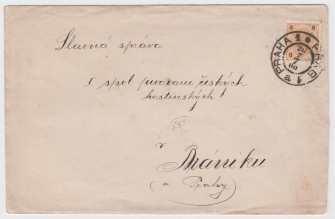 Slavná správa
I spol. pivovaru českých
hostinských
v
Bráníku
u Prahy
PRAHA 1 PRAG
6 6